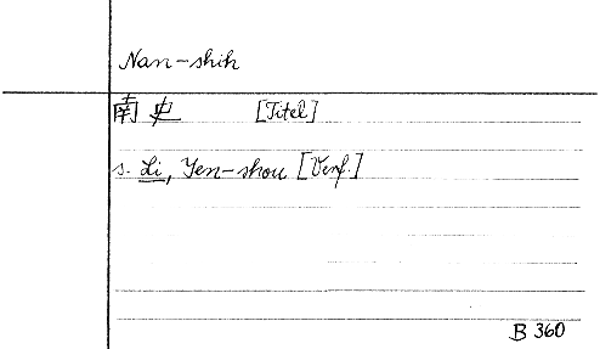 Nan-shih
南史 [Titel]
s. Li, Yen-shou [Verf.]
B 360